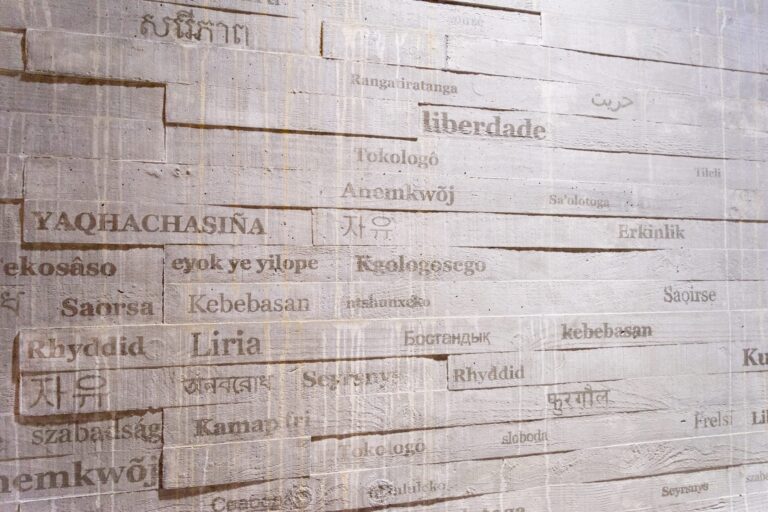 សេរីភាព
Rangatiratanga
حريت
liberdade
Tokologô
Tileli
Anemkwõj
Sa'olotoga
YAQHACHASIÑA
자유
Erkinlik
ekosâso
eyok ye yilope
Kgologosego
Saorsa
Kebebasan
ntshunxeko
Saoirse
Rhyddid
Liria
Бостандық
kebebasan
Ku
자유
অনবরোধ
Seyrsnys
Rhyddid
फुरगौल
szabadság
Kamap fri
Frelsi
Tokologo
sloboda
nemkwõj
Seyrsnys